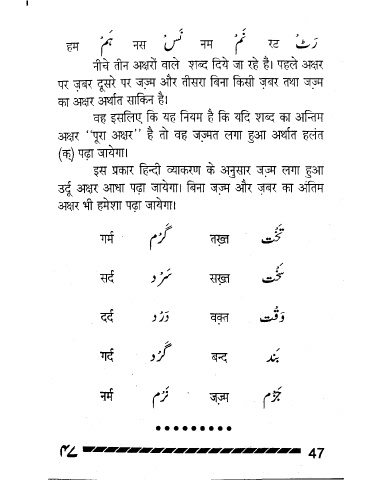 हम ہَمْ नस نَسْ नम نَمْ रट رَٹْ
नीचे तीन अक्षरों वाले शब्द दिये जा रहे है। पहले अक्षर
पर ज़बर दूसरे पर जज़्म और तीसरा बिना किसी ज़बर तथा जज़्म
का अक्षर अर्थात साकिन है।
वह इसलिए कि यह नियम है कि यदि शब्द का अन्तिम
अक्षर "पूरा अक्षर" है तो वह जज़्मत लगा हुआ अर्थात हलंत
(क्) पढ़ा जायेगा।
इस प्रकार हिन्दी व्याकरण के अनुसार जज़्म लगा हुआ
उर्दू अक्षर आधा पढ़ा जायेगा। बिना जज़्म और ज़बर का अंतिम
अक्षर भी हमेशा पढ़ा जायेगा।
गर्म گَرْم तख़्त تَخْت
सर्द سَرْد सख़्त سَخْت
दर्द دَرْد वक़्त وَقْت
गर्द گَرْد बन्द بَند
नर्म نَرْم जज़्म جَزْم
۴۷ 47